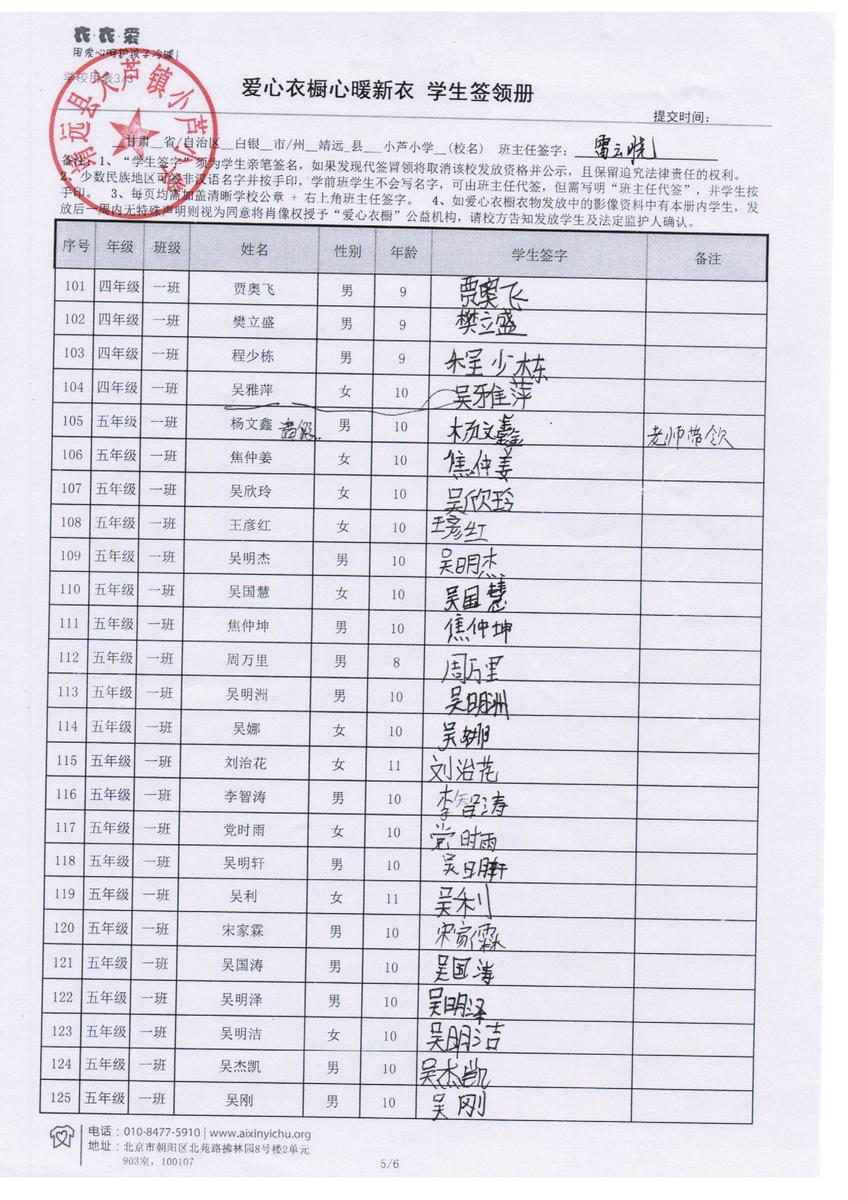 衣·衣·爱
用爱心呵护孩子冷暖!
学校用表3/3
靖远县大芦镇小芦小学
爱心衣橱心暖新衣 学生签领册
提交时间:
__甘肃__省/自治区__白银__市/州__靖远_县___小芦小学__(校名) 班主任签字:
备注:1、“学生签字”须为学生亲笔签名,如果发现代签冒领将取消该校发放资格并公示,且保留追究法律责任的权利。
2、少数民族地区可签非汉语名字并按手印,学前班学生不会写名字,可由班主任代签,但需写明“班主任代签”,并学生按
手印。 3、每页均需加盖清晰学校公章 + 右上角班主任签字。 4、如爱心衣橱衣物发放中的影像资料中有本册内学生,发
放后一周内无特殊声明则视为同意将肖像权授予“爱心衣橱”公益机构,请校方告知发放学生及法定监护人确认。
序号 年级 班级 姓名 性别 年龄 学生签字 备注
101 四年级 一班 贾奥飞 男 9 贾奥飞
102 四年级 一班 樊立盛 男 9 樊立盛
103 四年级 一班 程少栋 男 9 程少栋
104 四年级 一班 吴雅萍 女 10 吴雅萍
105 五年级 一班 杨文鑫 男 10 杨文鑫 老师带领
106 五年级 一班 焦仲姜 女 10 焦仲姜
107 五年级 一班 吴欣玲 女 10 吴欣玲
108 五年级 一班 王彦红 女 10 王彦红
109 五年级 一班 吴明杰 男 10 吴明杰
110 五年级 一班 吴国慧 女 10 吴国慧
111 五年级 一班 焦仲坤 男 10 焦仲坤
112 五年级 一班 周万里 男 8 周万里
113 五年级 一班 吴明洲 男 10 吴明洲
114 五年级 一班 吴娜 女 10 吴娜
115 五年级 一班 刘治花 女 11 刘治花
116 五年级 一班 李智涛 男 10 李智涛
117 五年级 一班 党时雨 女 10 党时雨
118 五年级 一班 吴明轩 男 10 吴明轩
119 五年级 一班 吴利 女 11 吴利
120 五年级 一班 宋家霖 男 10 宋家霖
121 五年级 一班 吴国涛 男 10 吴国涛
122 五年级 一班 吴明泽 男 10 吴明泽
123 五年级 一班 吴明洁 女 10 吴明洁
124 五年级 一班 吴杰凯 男 10 吴杰凯
125 五年级 一班 吴刚 男 10 吴刚
电话:010-8477-5910 | www.aixinyichu.org
地址:北京市朝阳区北苑路拂林园8号楼2单元
903室,100107
5/6